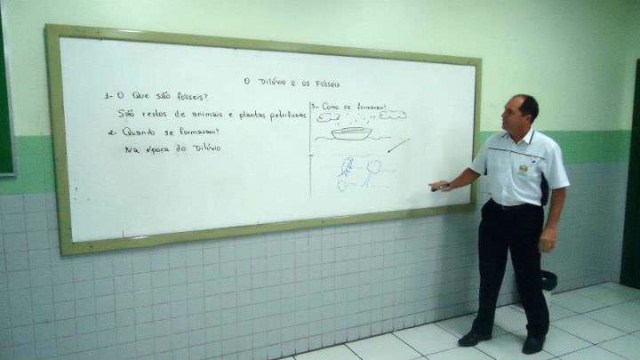 O Dilúvio e os Fósseis
1- O Que são fósseis?
São restos de animais e plantas petrificadas
2- Quando se formaram?
Na época do Dilúvio
3- Como se formaram?